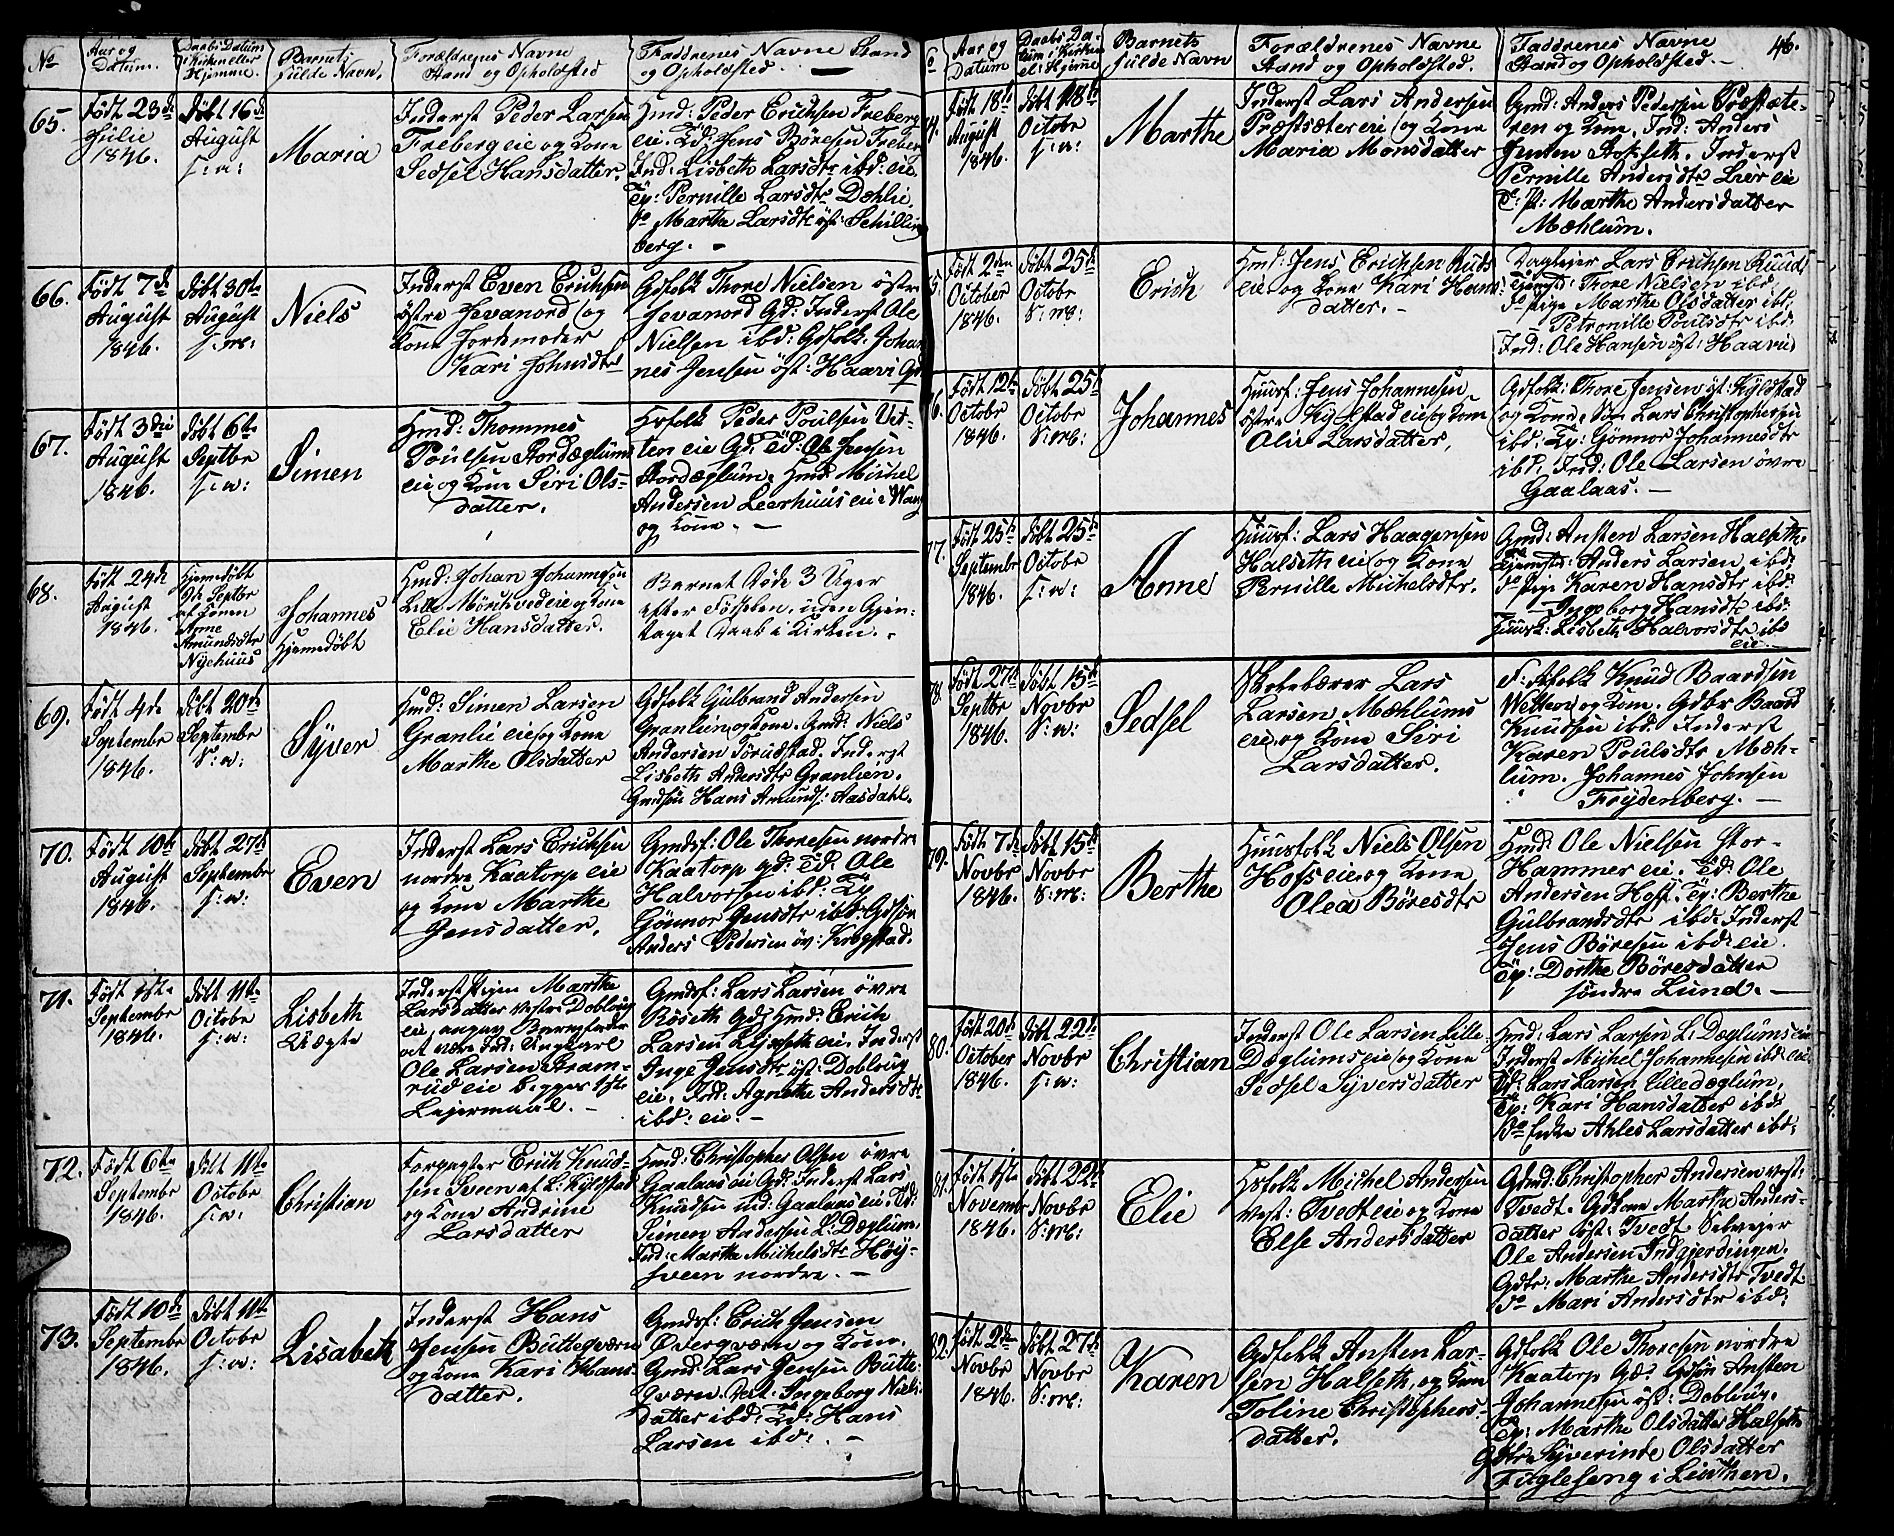 No
Aar og
Datum.
Daabs Datum
i Kirken eller
Hjemme.
Barnets
fulde Navn.
Forældrenes Navne
Stand og Opholdsted
Faddrenes Navne Stand
og Opholdsted.
65.
Födt 23de
Julie
1846.
Döbt 16de
August
f: w:
Maria
Inderst Peder Larsen
Freberg eie og Kone
Sedsel Hansdatter.
Hmd: Peder Erichsen Freberg
eie. Td: Jens Böresen Freberg
Ind: Lisbeth Larsdtr ibd: eie
Tp: Pernille Larsdtr Dæhlie,
do Martha Larsdtr öst: Schilling
berg. -
66.
Födt 7de
August
1846.
Döbt 30te
August
Niels
Inderst Even Erichsen
östre Jevanord og
Kone Jordemoder
Kari Johnsdtr
Gdfolk Thore Nielsen östre
Jevanord Gd: Inderst Ole
Nielsen ibd: Gdfolk: Johan
nes Jensen öst: Haavi Gd
67.
Födt 3die
August
1846.
Döbt 6te
Septbr
f: w:
Simen
Hmd: Thommes
Poulsen Stordæglum
eie og Kone Siri Ols-
datter.
Hsfolk Peder Poulsen Vet-
ten eie Gd. Td: Ole Jensen
Stordæglum. Hmd Michel
Andersen Leerhuus eie i Wang
og Kone. -
68.
Födt 24de
August
1846.
Hjemmedöbt
Septbr
af Konen
Anne
Amundsdtr
Nyehuus
Johannes
Hjemmedöbt
Hmd: Johan Johannesen
Lille Mörchved eie og Kone
Elie Hansdatter.
Barnet döde 3 Uger
efter Födselen, uden Gjen-
taget Daab i Kirken. -
69.
Födt 4de
Septembr
1846.
Döbt 20de
Septembr
Syver
Hmd: Simen Larsen
Granlie eie og Kone
Marthe Olsdatter
Gdfolk Gulbrand Andersen
Granlien og Kone. Gmd: Niels
Andersen Torudstad. Inderst
Lisbeth Andersdtr Granlien.
Gmdsön Hans Amunds: Aasdahl.
70.
Födt 10de
August
1846.
Döbt 27de
Septembr
f: w:
Even
Inderst Lars Erichsen
nordre Kaatorp eie
og Kone Marthe
Jensdatter.
Gmdsf: Ole Thoresen nordre
Kaatorp gd: Td: Ole
Halvorsen ibd: Tp
Gönnor Jensdtr ibd: Gdsön
Anders Pedersen öv: Krogstad.
71.
Födt 1ste
Septembr
1846.
Döbt 11te
Octobr
f: w:
Lisbeth
Uægte
Inderst Pigen Marthe
Larsdatter vestre Dobloug
eie, angav Barnefader
at være Ind: Ungkarl
Ole Larsen Stram-
rud eie begges 1ste
Lejermaal. -
Gmdsf: Lars Larsen övre
Röseth Gd: Hmd: Erich
Larsen eie, Inderst
Inge Jensdtr öst: Dobloug
eie. Ind: Agnethe Andersdtr
ibd: eie. -
72.
Födt 6te
Septembr
1846.
Döbt 11te
Octobr
f: w:
Christian
Forpagter Erich Knud-
sen Sveen af L: Kylstad
og Kone Andrine
Larsdatter
Hmd: Christopher Olsen övre
Gaalaas eie Gd: Inderst Lars
Knudsen nd: Gaalaas eie. Td:
Simen Andersen L: Dæglum.
Ind: Martha Michelsdtr Höy-
sveen nordre. -
73.
Födt 10de
Septembr
1846.
Döbt 11te
Octobr
f: w:
Lisabeth
Inderst Hans
Jensen Buttegværn
og Kone Kari Hans-
datter.
Gmdsf: Erich Jensen
Overgværn og Kone.
Gmd: Lars Jensen Butte-
gværn. Ingeborg Niels-
datter ibd: Td: Hans
Larsen ibd: -
46.
Aar og
Datum
Daabs Da-
tum i Kirken
el: Hjemme
Barnets
fulde Navn
Forældrenes Navne
Stand og Opholdsted.
Faddrenes Navne
Stand og Opholdsted. -
74.
Födt 18de
August
1846.
Döbt 18de
Octobr
f: w:
Marthe
Inderst Lars Andersen
Præstsæter eie og Kone
Maria Monsdatter
Gmd: Anders Pedersen Præstsæte-
ren og Kone. Ind: Anders
Jensen Stokseth. Inderst
Pernille Andersdtr Lier eie
Marthe Andersdatter
Mæhlum.
75.
Födt 2den
October
1846.
Döbt 25de
Octobr
Erich
Hmd: Jens Erichsen Ruds
eie og Kone Kari Hans-
datter. -
Daglejer Lars Erichsen Ruud,
Tjenestd: Thore Nielsen ibd:
do pige Marthe Olsdatter ibd,
Petronille Poulsdtr ibd:
Ind: Ole Hansen öst: Haavi
76.
Födt 12te
Octobr
1846.
Döbt 25de
Octobr
Johannes
Huusf: Jens Johannesen
östre Kylstad eie og Kone
Olia Larsdatter,
Gdfolk: Thore Jensen öst: Kylstad
og Kone. Lars Christophersen
ibd: Tp: Gönnor Johannesdtr
ibd, Ind: Ole Larsen övre
Gaalaas. -
77.
Födt 25de
Septembr
1846.
Döbt 25de
Octobr
f: w:
Anne
Huusf: Lars Haagensen
Halseth eie og Kone
Pernille Michelsdtr.
Gmd: Ansten Larsen Halseth.
Tjenestd: Anders Larsen ibd:
do Pige Karen Hansdtr ibd:
Ingeborg Hansdtr ibd:
Huusk: Lisbeth Halvorsdtr ibd
eie. -
78.
Födt 27de
Septbr
1846.
Döbt 15de
Novbr
Sedsel
Larsen Mæhlums
eie og Kone Siri
Larsdatter.
Knud Baardsen
Wetten og Kone. Gdbr Baard
Knudsen ibd. Inderst
Karen Poulsdtr Mæh-
lum. Johannes Johnsen
Frydenberg. -
79.
Födt 7de
Novbr
1846.
Döbt 15de
Novbr
Berthe
Huusfolk Niels Olsen
Hofs eie og Kone
Olea Böresdtr
Hmd: Ole Nielsen Stor-
Hammer eie. Td: Ole
Andersen Hoff. Tp: Berthe
Gulbrandsdtr ibd: Inderst
Jens Böresen ibd: eie.
Tp: Dorthe Böresdatter
söndre Lund. -
80.
Födt 20de
October
1846.
Döbt 22de
Novbr
f: w:
Christian
Inderst Ole Larsen Lille
Dæglums eie og Kone
Sedsel Syversdatter
Hmd: Lars Larsen L: Dæglums eie
Inderst Michel Johannesen ibd: eie
Td: Lars Larsen Lilledæglum,
Tp: Kari Hansdatter ibd:
do Enke Ahles Larsdatter ibd:
81.
Födt 1ste
Novembr
1846.
Döbt 22de
Novbr
Elie
Hsfolk Michel Andersen
vest: Tvedt eie og Kone
Else Andersdatter
Gdmd: Christopher Andersen vest:
Tvedt. Gdkone Marthe Anders-
datter öst: Tvedt. Selvejer
Ole Andersen Indgjerdingen.
Gdtr: Marthe Andersdtr Tvedt
do Mari Andersdtr ibd:
82.
Födt 2den
Novbr
1846.
Döbt 27de
Novbr
Karen
Gdfolk Ansten Lar-
sen Halseth, og Kone
Toline Christophers-
datter.
Gdfolk Ole Thoresen nordre
Kaatorp Gd: Gdsön Ansten
Johannesen öst: Doblaug.
Tp: Marthe Olsdatter Halseth
Gdtr Syverinte Olsdatter
Fuglesang i Löuthen.